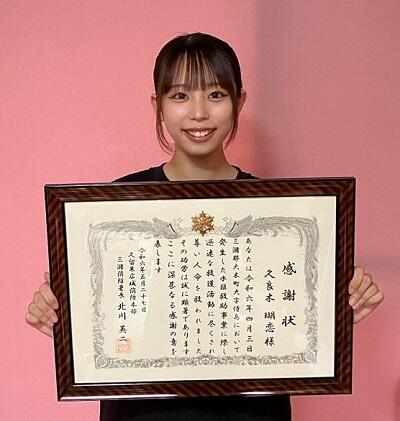 感謝状
久良木 瑚恋 様
あなたは令和六年四月三日
三潴郡大木町大字侍島において
発生した水難救助事案に際し
迅速な救護活動に尽くされ
尊い人命を救われました
その功労は誠に顕著であります
ここに深甚なる感謝の意を
表します
令和六年五月二十七日
久留米広域消防本部
三潴消防署長 北川 英二